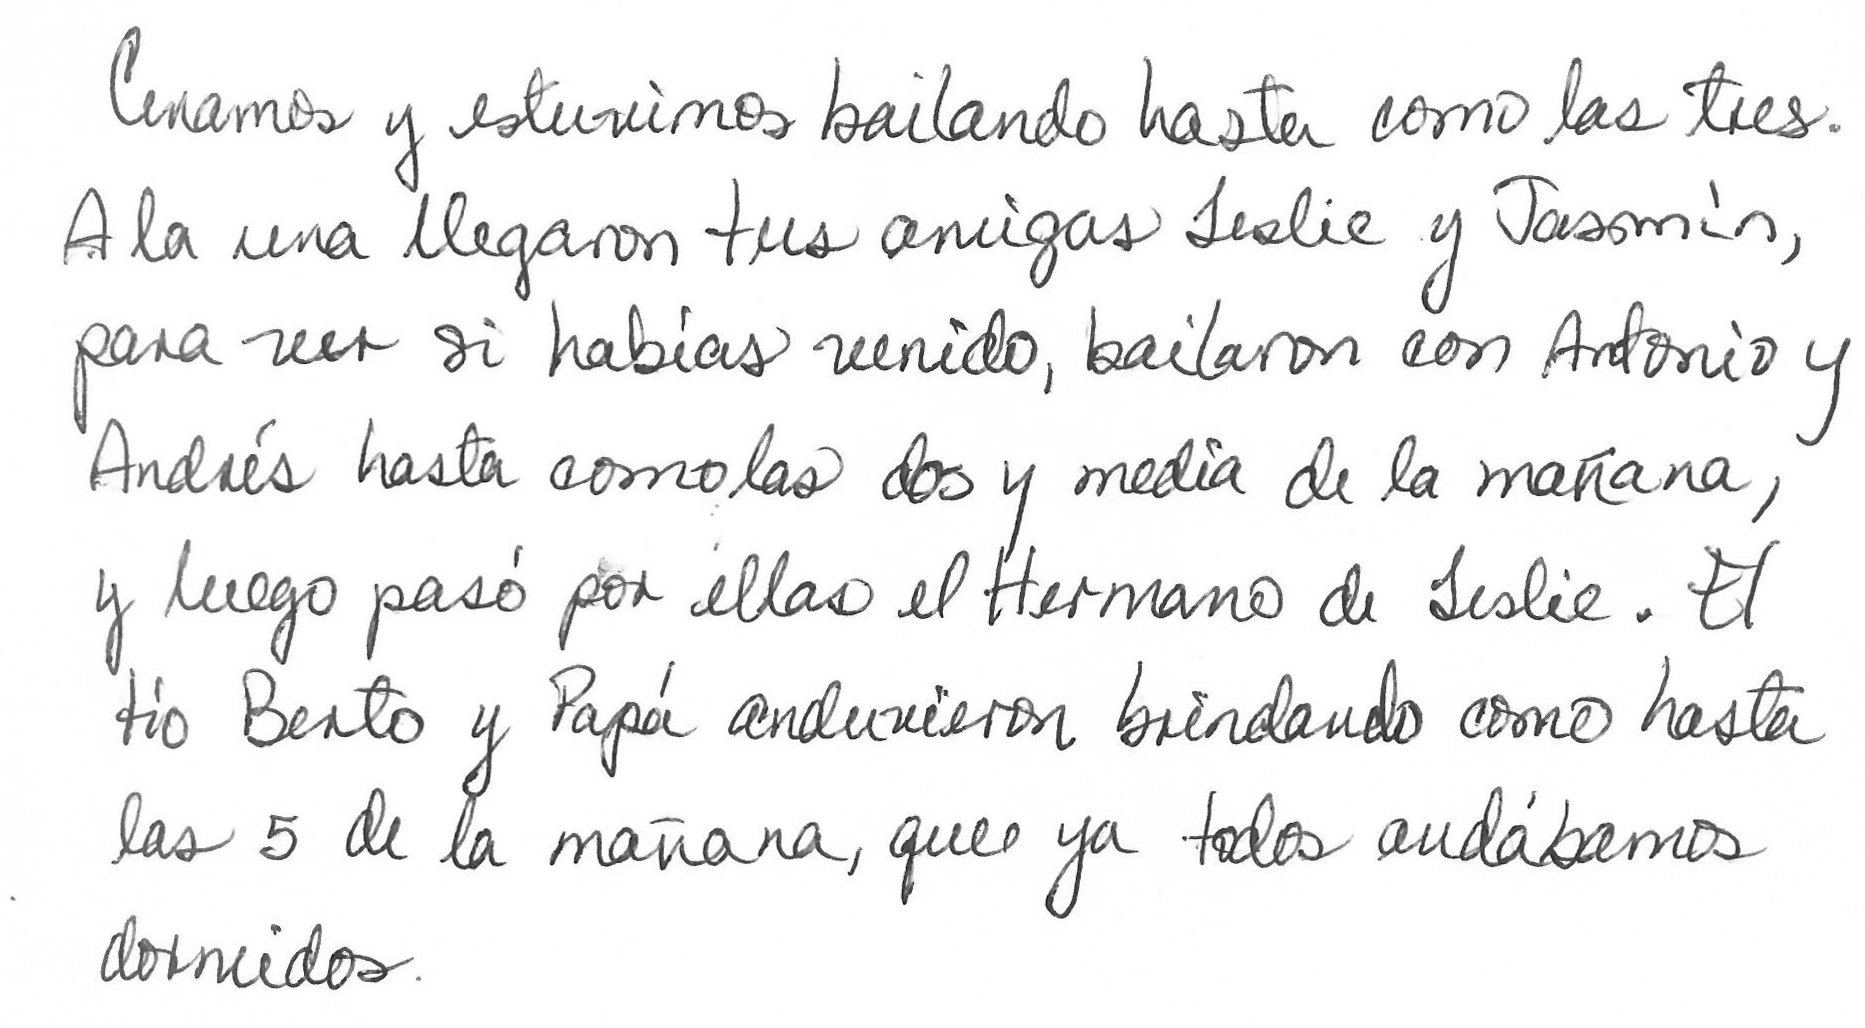 Cenamos y estuvimos bailando hasta como las tres.
A la una llegaron tus amigas Leslie y Jasmín,
para ver si habías venido, bailaron con Antonio y
Andrés hasta como las dos y media de la mañana,
y luego pasó por ellas el Hermano de Leslie. El
tío Berto y Papá anduvieron brindando como hasta
las 5 de la mañana, que ya todos andábamos
dormidos.